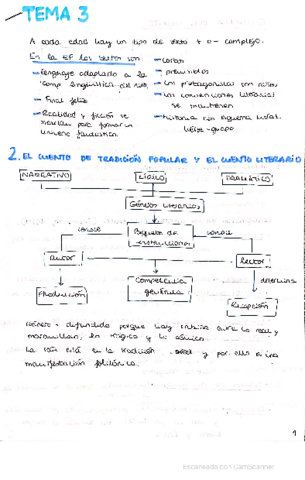 TEMA 3
A cada edad hay un tipo de texto + o - complejo.
En la EF los textos son:
- Cortos
- Lenguaje adaptado a la
comp. lingüística del niño
- previsibles
- Los protagonistas son niños
- Las convenciones literarias
se
- Final feliz
- Realidad y ficción se
para formar un
universo fantástico.
- historia con esquema lineal.
2. EL CUENTO DE TRADICIÓN POPULAR Y EL CUENTO LITERARIO
NARRATIVO
LÍRICO
DRAMÁTICO
Géneros literarios
conoce
de
instrucciones
conoce
autor
lector
Producción
Competencia
genérica
determina
Recepción
género + difundido porque hay entre lo real y
maravilloso, lo mágico y lo
La está en la tradición oral y por ello es una
manifestación folclórica.
1
Escaneado con CamScanner